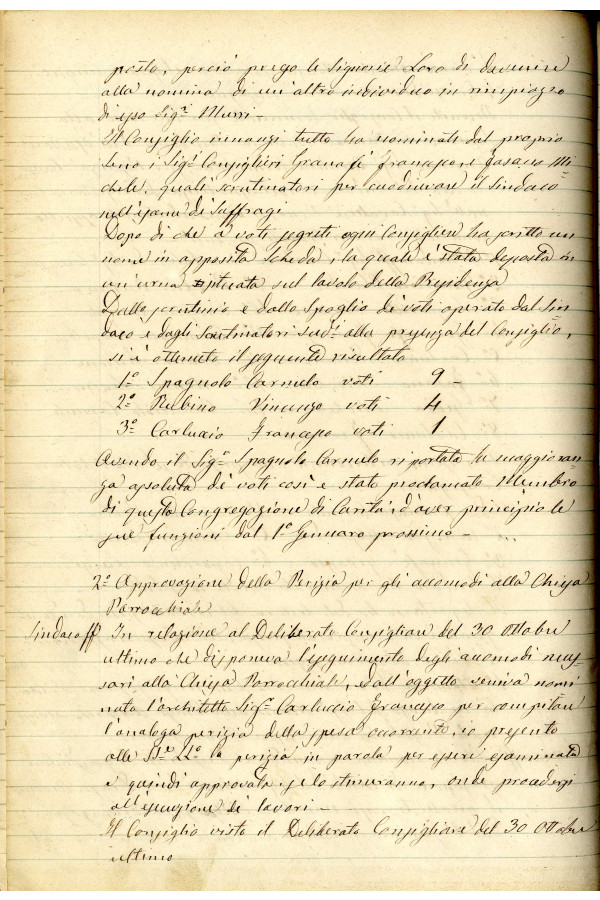 posto, perciò prego le Signorie Loro di devenire
alla nomina di un'altro individuo in rimpiazzo
di esso Sigr Murri -
Il Consiglio innanzi tutto ha nominati dal proprio
seno i Sigi Consiglieri Granafè Francesco e Fasano Mi=
chele, quali scrutinatori per coadiuvare il Sindaco
nell'esame di Suffragi
Dopo di che a voti segreti ogni Consigliere ha scritto un
nome in apposita scheda, la quale è stata deposta in
un'urna situata sul tavolo della Presidenza
Dallo scrutinio e dallo Spoglio de' voti operato dal Sin
daco e dagli Scrutinatori sudi alla presenza del Consiglio,
si è ottenuto il seguente risultato
1º Spagnolo Carmelo voti 9 -
2º Rubino Vincenzo voti 4
3º Carluccio Francesco voti 1
Avendo il Sigr Spagnolo Carmelo riportata la maggioran-
za assoluta de' voti così è stato proclamato Membro
di questa Congregazione di Carità, d'aver principio le
sue funzioni dal 1º Gennaro prossimo -
2º Approvazione della Perizia per gli accomodi alla Chiesa
Parrocchiale
Sindaco ff In relazione al Deliberato Consigliare del 30 Ottobre
ultimo che disponeva l'eseguimento degli accomodi neces-
sari alla Chiesa Parrocchiale, dall'oggetto veniva nomi
nato l'architetto Sigr Carluccio Francesco per compilare
l'analoga perizia della spesa occorrente, io presento
alle la perizia in parola per essere esaminata
e quindi approvata, se lo stimeranno, onde procedersi
all'esecuzione de' lavori -
Il Consiglio visto il Deliberato Consigliare del 30 Ottobre
ultimo